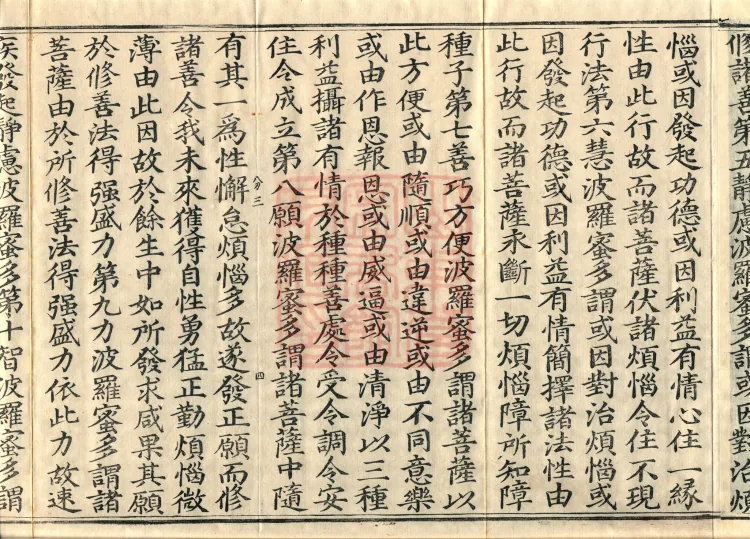 修諸善第五靜慮波羅蜜多謂或因對治煩
惱或因發起功德或因利益有情心住一緣
性由此行故而諸菩薩伏諸煩惱令住不現
行法第六慧波羅蜜多謂或因對治煩惱或
因發起功德或因利益有情簡擇諸法性由
此行故而諸菩薩永斷一切煩惱障所知障
種子第七善巧方便波羅蜜多謂諸菩薩以
此方便或由隨順或由違逆或由不同意樂
或由作恩報恩或由威逼或由清淨以三種
利益攝諸有情於種種善處令受令調令安
住令成立第八願波羅蜜多謂諸菩薩中隨
八分三
四
有其一爲性懈怠煩惱多故遂發正願而修
諸善令我未來獲得自性勇猛正勤煩惱微
薄由此因故於餘生中如所發求咸果其願
於修善法得强盛力第九力波羅蜜多謂諸
菩薩由於所修善法得强盛力依此力故速
疾發起靜慮波羅蜜多第十智波羅蜜多謂